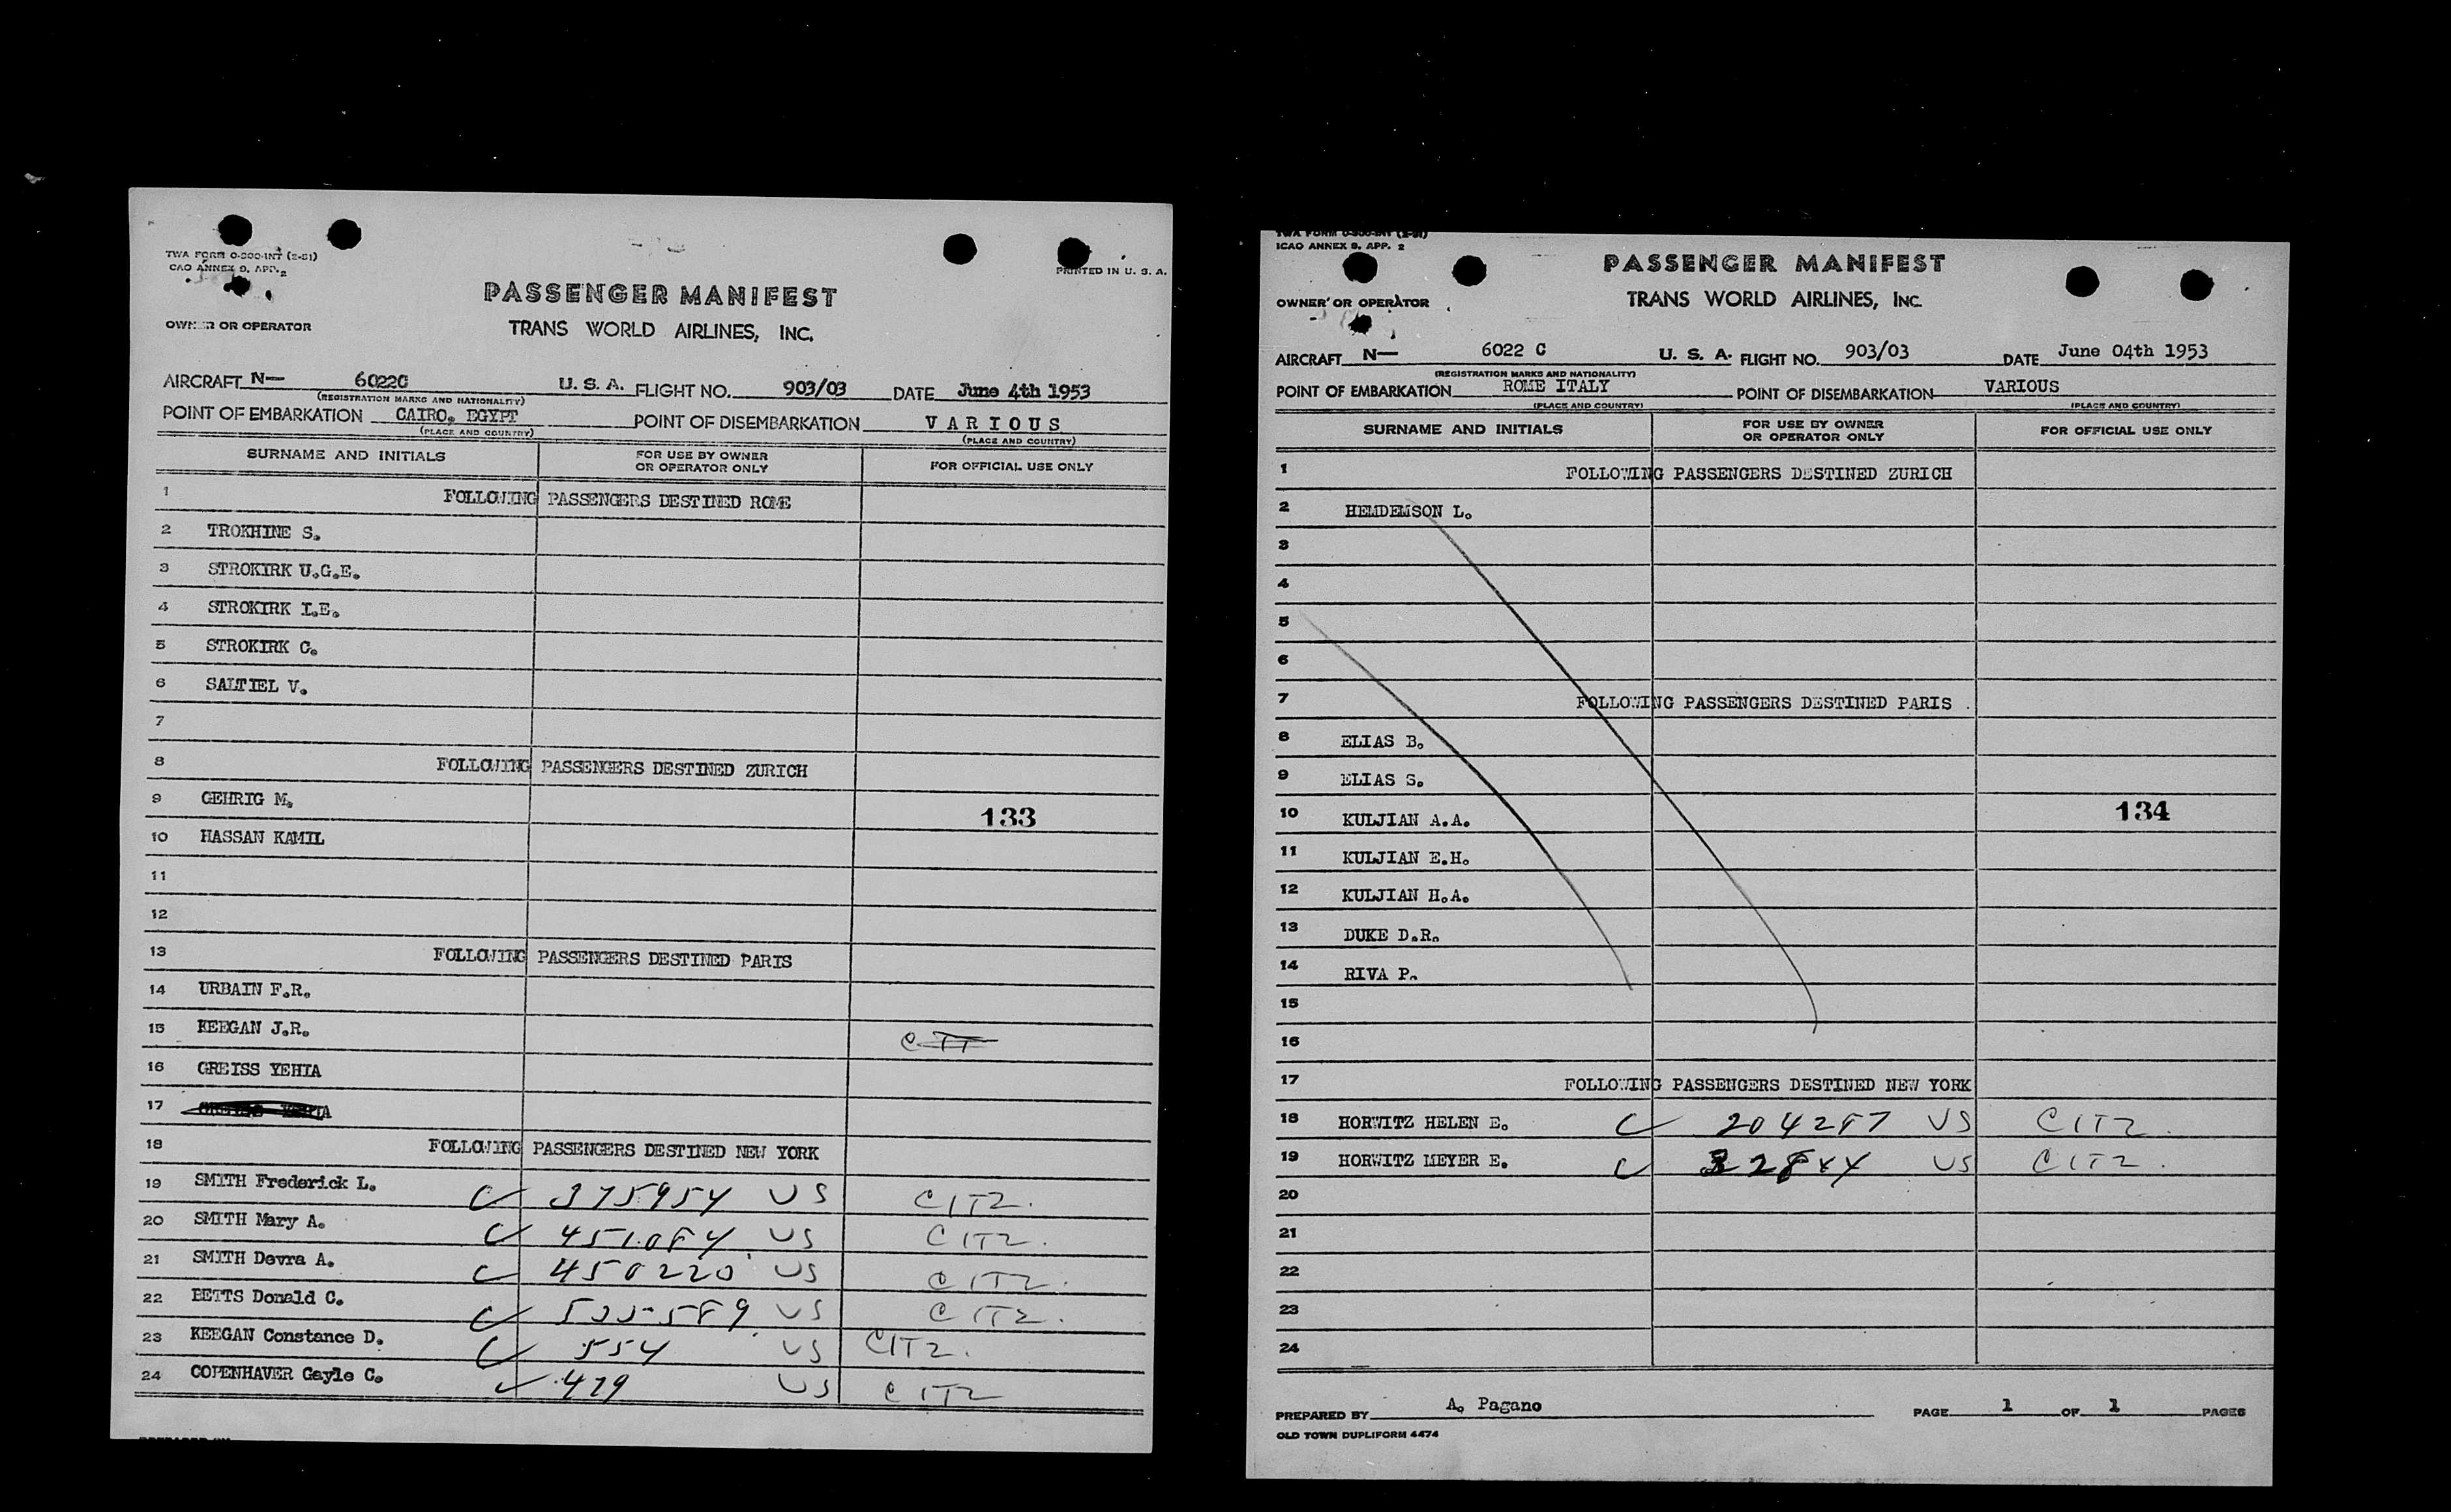 TWA FORM 0-800-INT (2-51)
CAO ANNEX 9, APP. 2
PRINTED IN U. S. A.
PASSENGER MANIFEST
OWNER OR OPERATOR
TRANS WORLD AIRLINES, INC.
AIRCRAFT N— 6022C U. S. A. FLIGHT NO. 903/03 DATE June 4th 1953
(REGISTRATION MARKS AND NATIONALITY)
POINT OF EMBARKATION CAIRO, EGYPT POINT OF DISEMBARKATION V A R I O U S
(PLACE AND COUNTRY) (PLACE AND COUNTRY)
SURNAME AND INITIALS FOR USE BY OWNER OR OPERATOR ONLY FOR OFFICIAL USE ONLY
1 FOLLOWING PASSENGERS DESTINED ROME
2 TROKHINE S.
3 STROKIRK U.G.E.
4 STROKIRK I.E.
5 STROKIRK C.
6 SALTIEL V.
7
8 FOLLOWING PASSENGERS DESTINED ZURICH
9 GEHRIG M. 133
10 HASSAN KAMIL
11
12
13 FOLLOWING PASSENGERS DESTINED PARIS
14 URBAIN F.R.
15 KEEGAN J.R. CIT
16 GREISS YEHIA
17
18 FOLLOWING PASSENGERS DESTINED NEW YORK
19 SMITH Frederick L. 375954 US CITZ.
20 SMITH Mary A. 451084 US CITZ.
21 SMITH Devra A. 450220 US CITZ.
22 BETTS Donald C. US CITZ.
23 KEEGAN Constance D. 554 US CITZ.
24 COPENHAVER Gayle C. 479 US CITZ
TWA FORM 0-800-INT (2-51)
ICAO ANNEX 9, APP. 2
PASSENGER MANIFEST
OWNER OR OPERATOR
TRANS WORLD AIRLINES, INC.
AIRCRAFT N— 6022 C U. S. A. FLIGHT NO. 903/03 DATE June 04th 1953
(REGISTRATION MARKS AND NATIONALITY)
POINT OF EMBARKATION ROME ITALY POINT OF DISEMBARKATION VARIOUS
(PLACE AND COUNTRY) (PLACE AND COUNTRY)
SURNAME AND INITIALS FOR USE BY OWNER OR OPERATOR ONLY FOR OFFICIAL USE ONLY
1 FOLLOWING PASSENGERS DESTINED ZURICH
2 HEMDEMSON L.
3
4
5
6
7 FOLLOWING PASSENGERS DESTINED PARIS
8 ELIAS B.
9 ELIAS S.
10 KULJIAN A.A. 134
11 KULJIAN E.H.
12 KULJIAN H.A.
13 DUKE D.R.
14 RIVA P.
15
16
17 FOLLOWING PASSENGERS DESTINED NEW YORK
18 HORWITZ HELEN E. 204287 US CITZ.
19 HORWITZ MEYER E. US CITZ.
20
21
22
23
24
PREPARED BY A. Pagano PAGE 1 OF 1 PAGES
OLD TOWN DUPLIFORM 4474